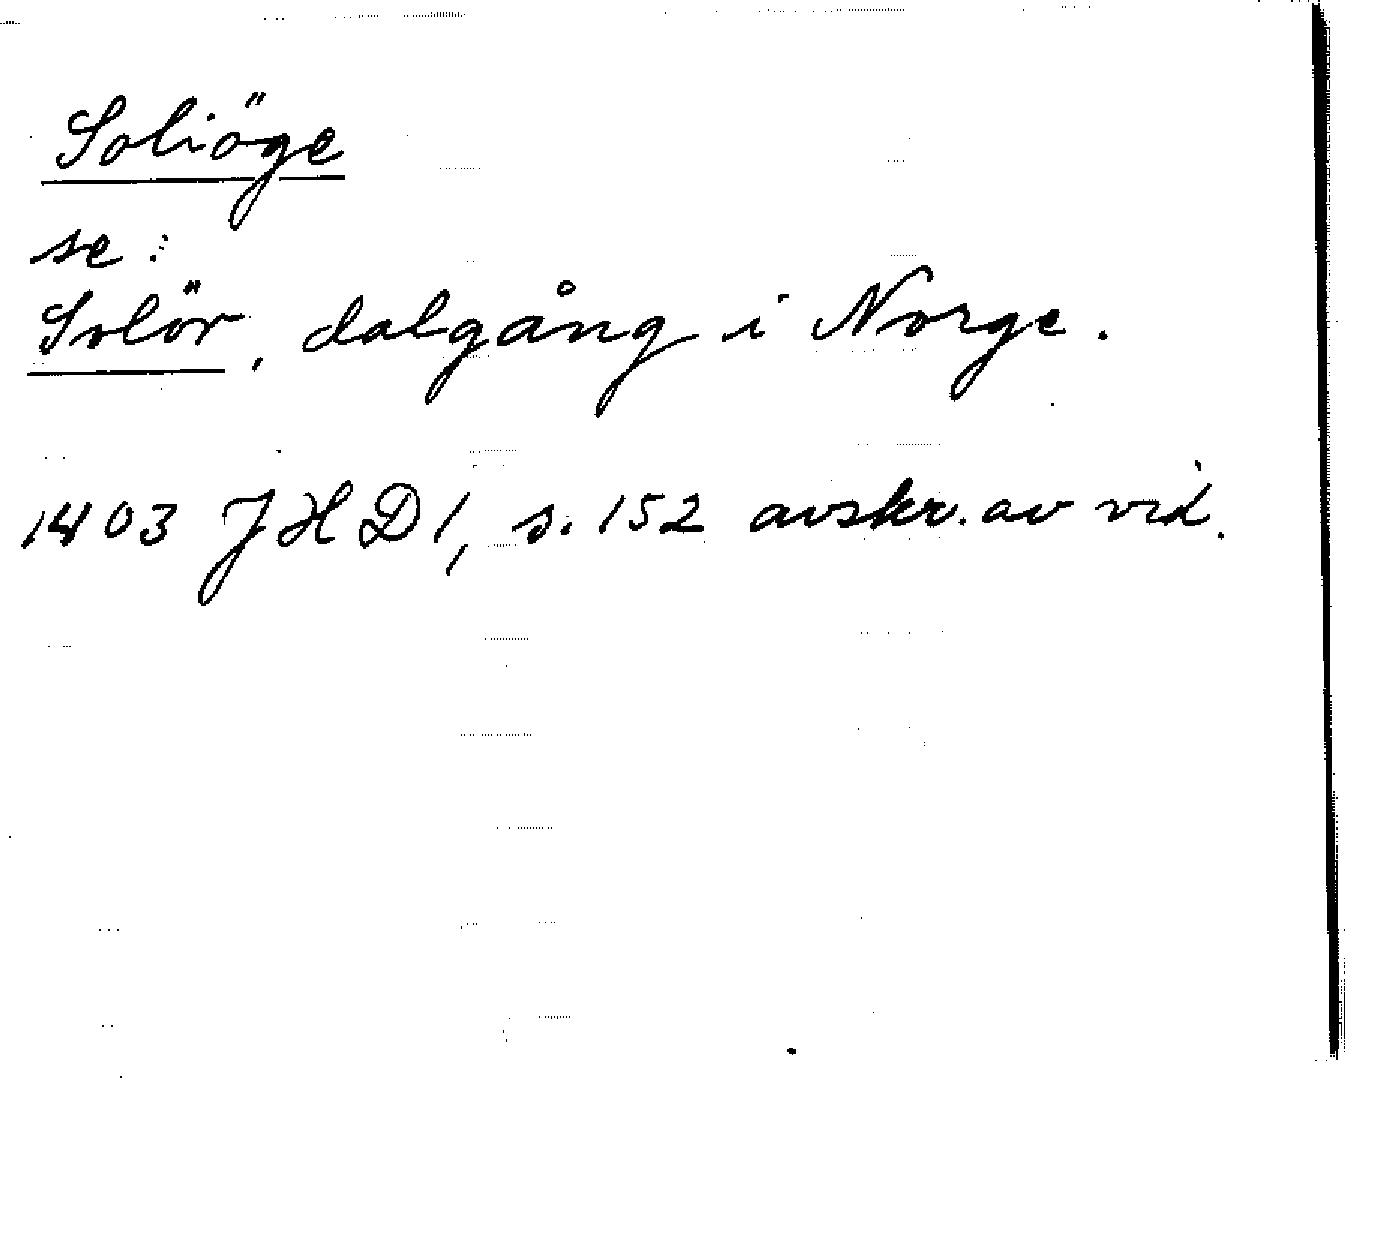 Soliöge
se:
Solör, dalgång i Norge.
1403 JHD1, s. 152 avskr. av vid.